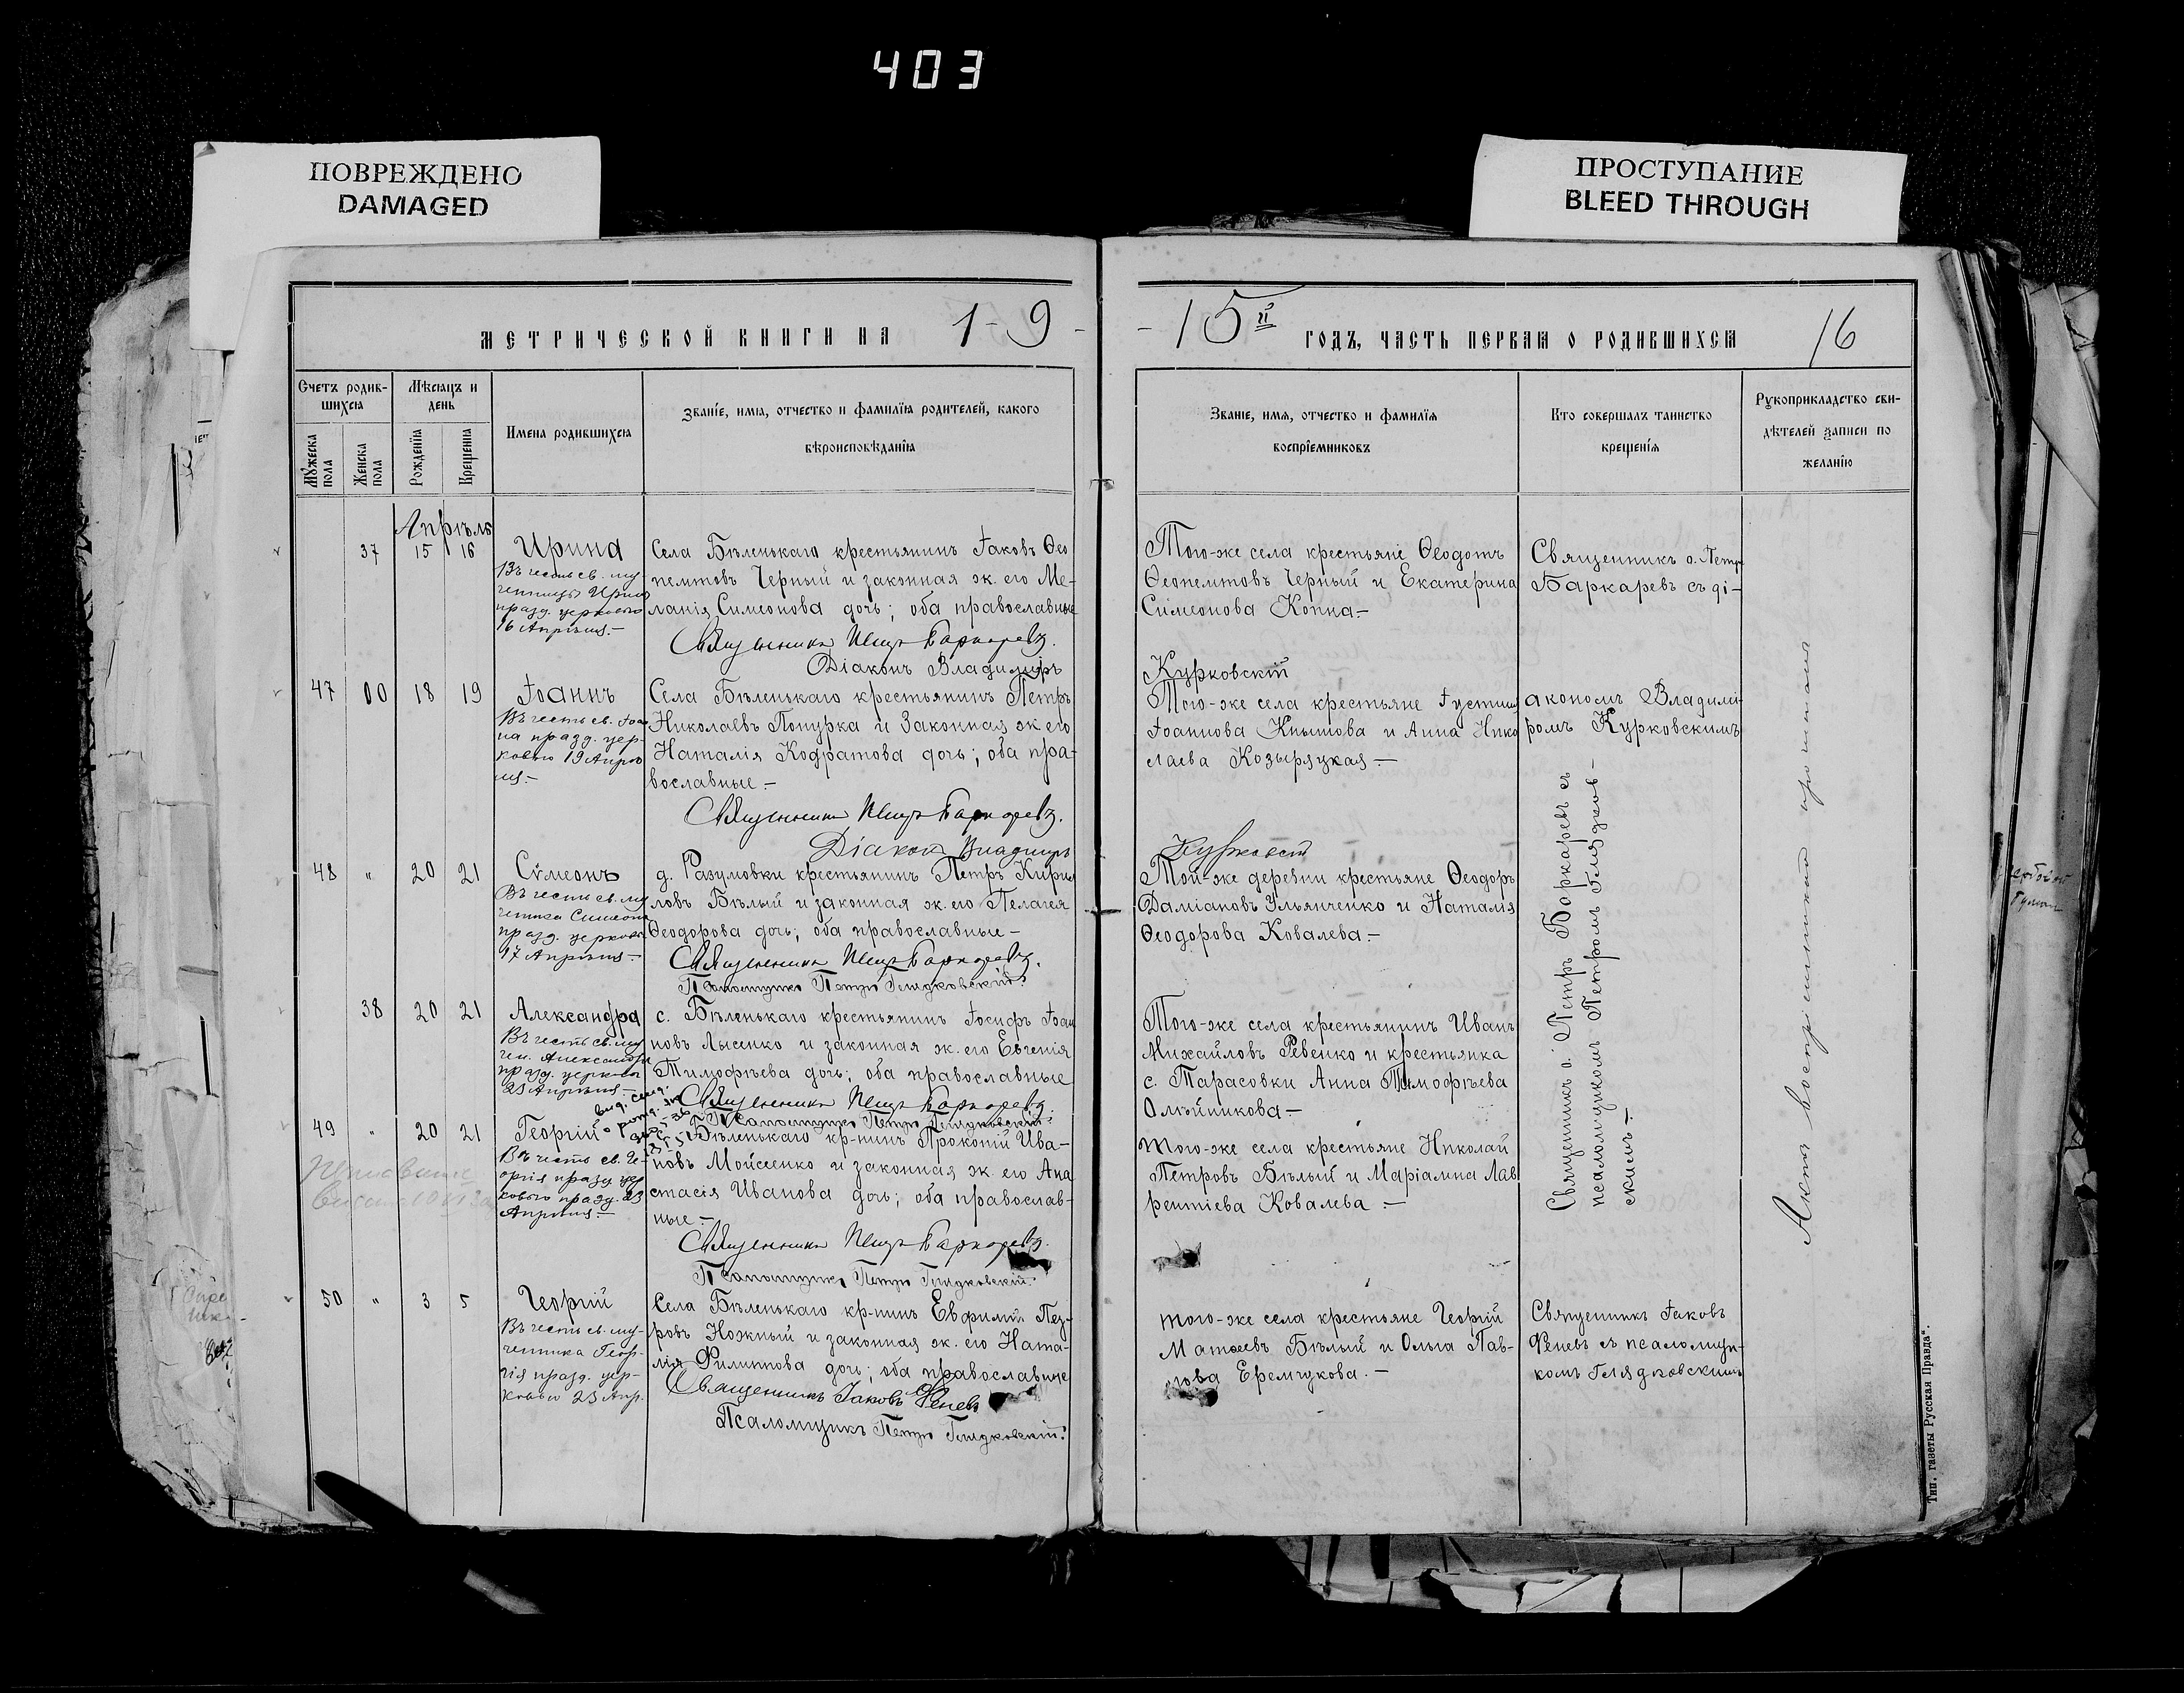 403
ПОВРЕЖДЕНО
DAMAGED
ПРОСТУПАНИЕ
BLEED THROUGH
МЕТРИЧЕСКОЙ КНИГИ НА 1-9-
-15й ГОДЪ, ЧАСТЬ ПЕРВАЯ О РОДИВШИХСЯ 16
Счетъ родив-
шихся
Мужеска
пола
Женска
пола
Мѣсяцъ и
день
Рожденія
Крещенія
Имена родившихся
Званіе, имя, отчество и фамилія родителей, какого
вѣроисповѣданія
Званіе, имя, отчество и фамилія
воспріемниковъ
Кто совершалъ таинство
крещенія
Рукоприкладство сви-
дѣтелей записи по
желанію
Апрѣль
37 15 16
Ирина
Въ честь св. му-
ченицы Ирины
празд. церковью
16 Апрѣля.-
Села Бѣленькаго крестьянинъ Іаковъ Ѳео
пемтовъ Черный и законная ж. его Ме-
ланія Симеонова дочь; оба православные
Священникъ Петръ Баркаревъ.
Діаконъ Владиміръ
Того-же села крестьяне Ѳеодотъ
Ѳеопемтовъ Черный и Екатерина
Симеонова Копна-
Курковскій
Священникъ о. Петръ
Баркаревъ съ ді-
47 00 18 19
Іоаннъ
Въ честь св. Іоан
на празд. цер-
ковью 19 Апрѣ
ля.-
Села Бѣленькаго крестьянинъ Петръ
Николаевъ Попурка и Законная ж его
Наталія Кодратова дочь; оба пра-
вославные.-
Священникъ Петръ Баркаревъ.
Діаконъ Владиміръ
Того-же села крестьяне Іустина
Іоаннова Кнышова и Анна Нико
лаева Козыряцкая.-
Курковскій
акономъ Владимі-
ромъ Курковскимъ
48 " 20 21
Сѵмеонъ
Въ честь св. му
ченика Симеона
празд. церковью
17 Апрѣля.-
д. Разумовки крестьянинъ Петръ Кирил
ловъ Бѣлый и законная ж. его Пелагея
Ѳеодорова дочь; оба православные-
Священникъ Петръ Баркаревъ.
Псаломщикъ Петръ Глядковскій.
Той-же деревни крестьяне Ѳеодоръ
Даміановъ Ульянченко и Наталія
Ѳеодорова Ковалева.-
Священникъ о. Петръ Боркаревъ съ
псаломщикомъ Петромъ Глядков-
скимъ-
38 20 21
Александра
Въ честь св. му
чен. Александры
празд. церковью
23 Апрѣля-
с. Бѣленькаго крестьянинъ Іосифъ Іоан
новъ Лысенко и законная ж. его Евгенія
Тимофѣева дочь; оба православные
Священникъ Петръ Баркаревъ.
Псаломщикъ Петръ Глядковскій.
Того-же села крестьянинъ Иванъ
Михайловъ Ревенко и крестьянка
с. Тарасовки Анна Тимофѣева
Олѣйникова-
49 " 20 21
Георгій
Въ честь св. Ге-
оргія празд цер
ковью празд. 23
Апрѣля.-
с. Бѣленькаго кр-нинъ Прокопій Ива-
новъ Мойсеенко и законная ж. его Ана
стасія Иванова дочь; оба православ-
ные.-
Священникъ Петръ Баркаревъ.
Псаломщикъ Петръ Глядковскій.
того-же села крестьяне Николай
Петровъ Бѣлый и Маріамна Лав
рентіева Ковалева.-
50 " 3 5
Георгій
Въ честь св. му-
ченика Геор-
гія празд. цер-
ковью 23 Апр.
Села Бѣленькаго кр-нинъ Евфимій Пет-
ровъ Ножный и законная ж. его Ната-
лія Филиппова дочь; оба православные
Священникъ Іаковъ Феневъ
Псаломщикъ Петръ Глядковскій.
того-же села крестьяне Георгій
Матѳеевъ Бѣлый и Ольга Пав-
лова Еремчукова.-
Священникъ Іаковъ
Феневъ съ псаломщи-
комъ Глядковскимъ
Актъ воспріемникамъ прочитанъ
Тип. газеты Русская Правда".